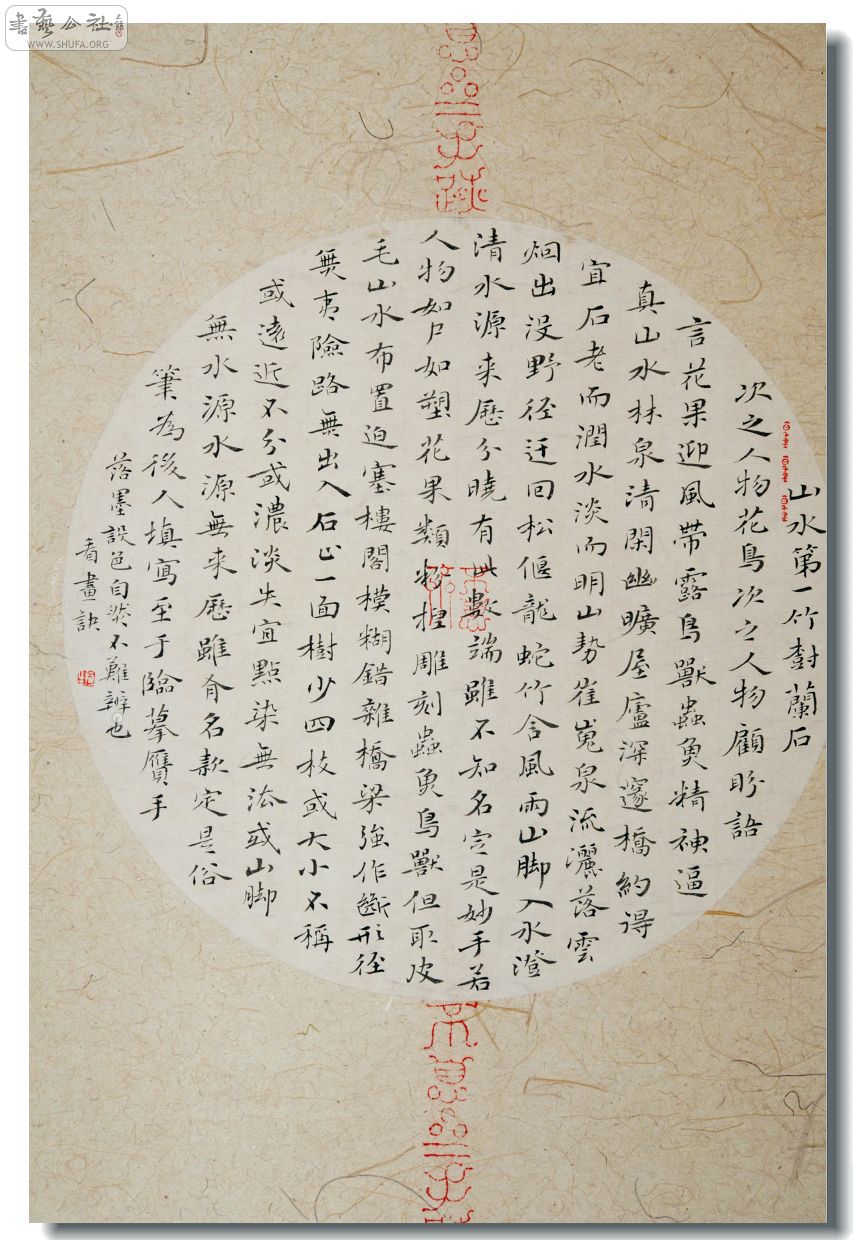 書藝公社
WWW.SHUFA.ORG
山水第一竹樹蘭石
次之人物花鳥次之人物顧盼語
言花果迎風帶露鳥獸蟲魚精神逼
真山水林泉清閑幽曠屋廬深邃橋約得
宜石老而潤水淡而明山勢崔嵬泉流灑落雲
烟出沒野径迂回松偃龍蛇竹含風雨山脚入水澄
清水源来歷分曉有此數端雖不知名定是妙手若
人物如尸如塑花果類粉捏雕刻蟲魚鳥獸但取皮
毛山水布置迫塞樓閣模糊錯雜橋梁強作斷形径
無夷險路無出入石止一面樹少四枝或大小不稱
或遠近不分或濃淡失宜點染無法或山脚
無水源水源無来歷雖有名款定是俗
筆為後人填寫至于臨摹贋手
落墨設色自然不難辨也
看畫訣